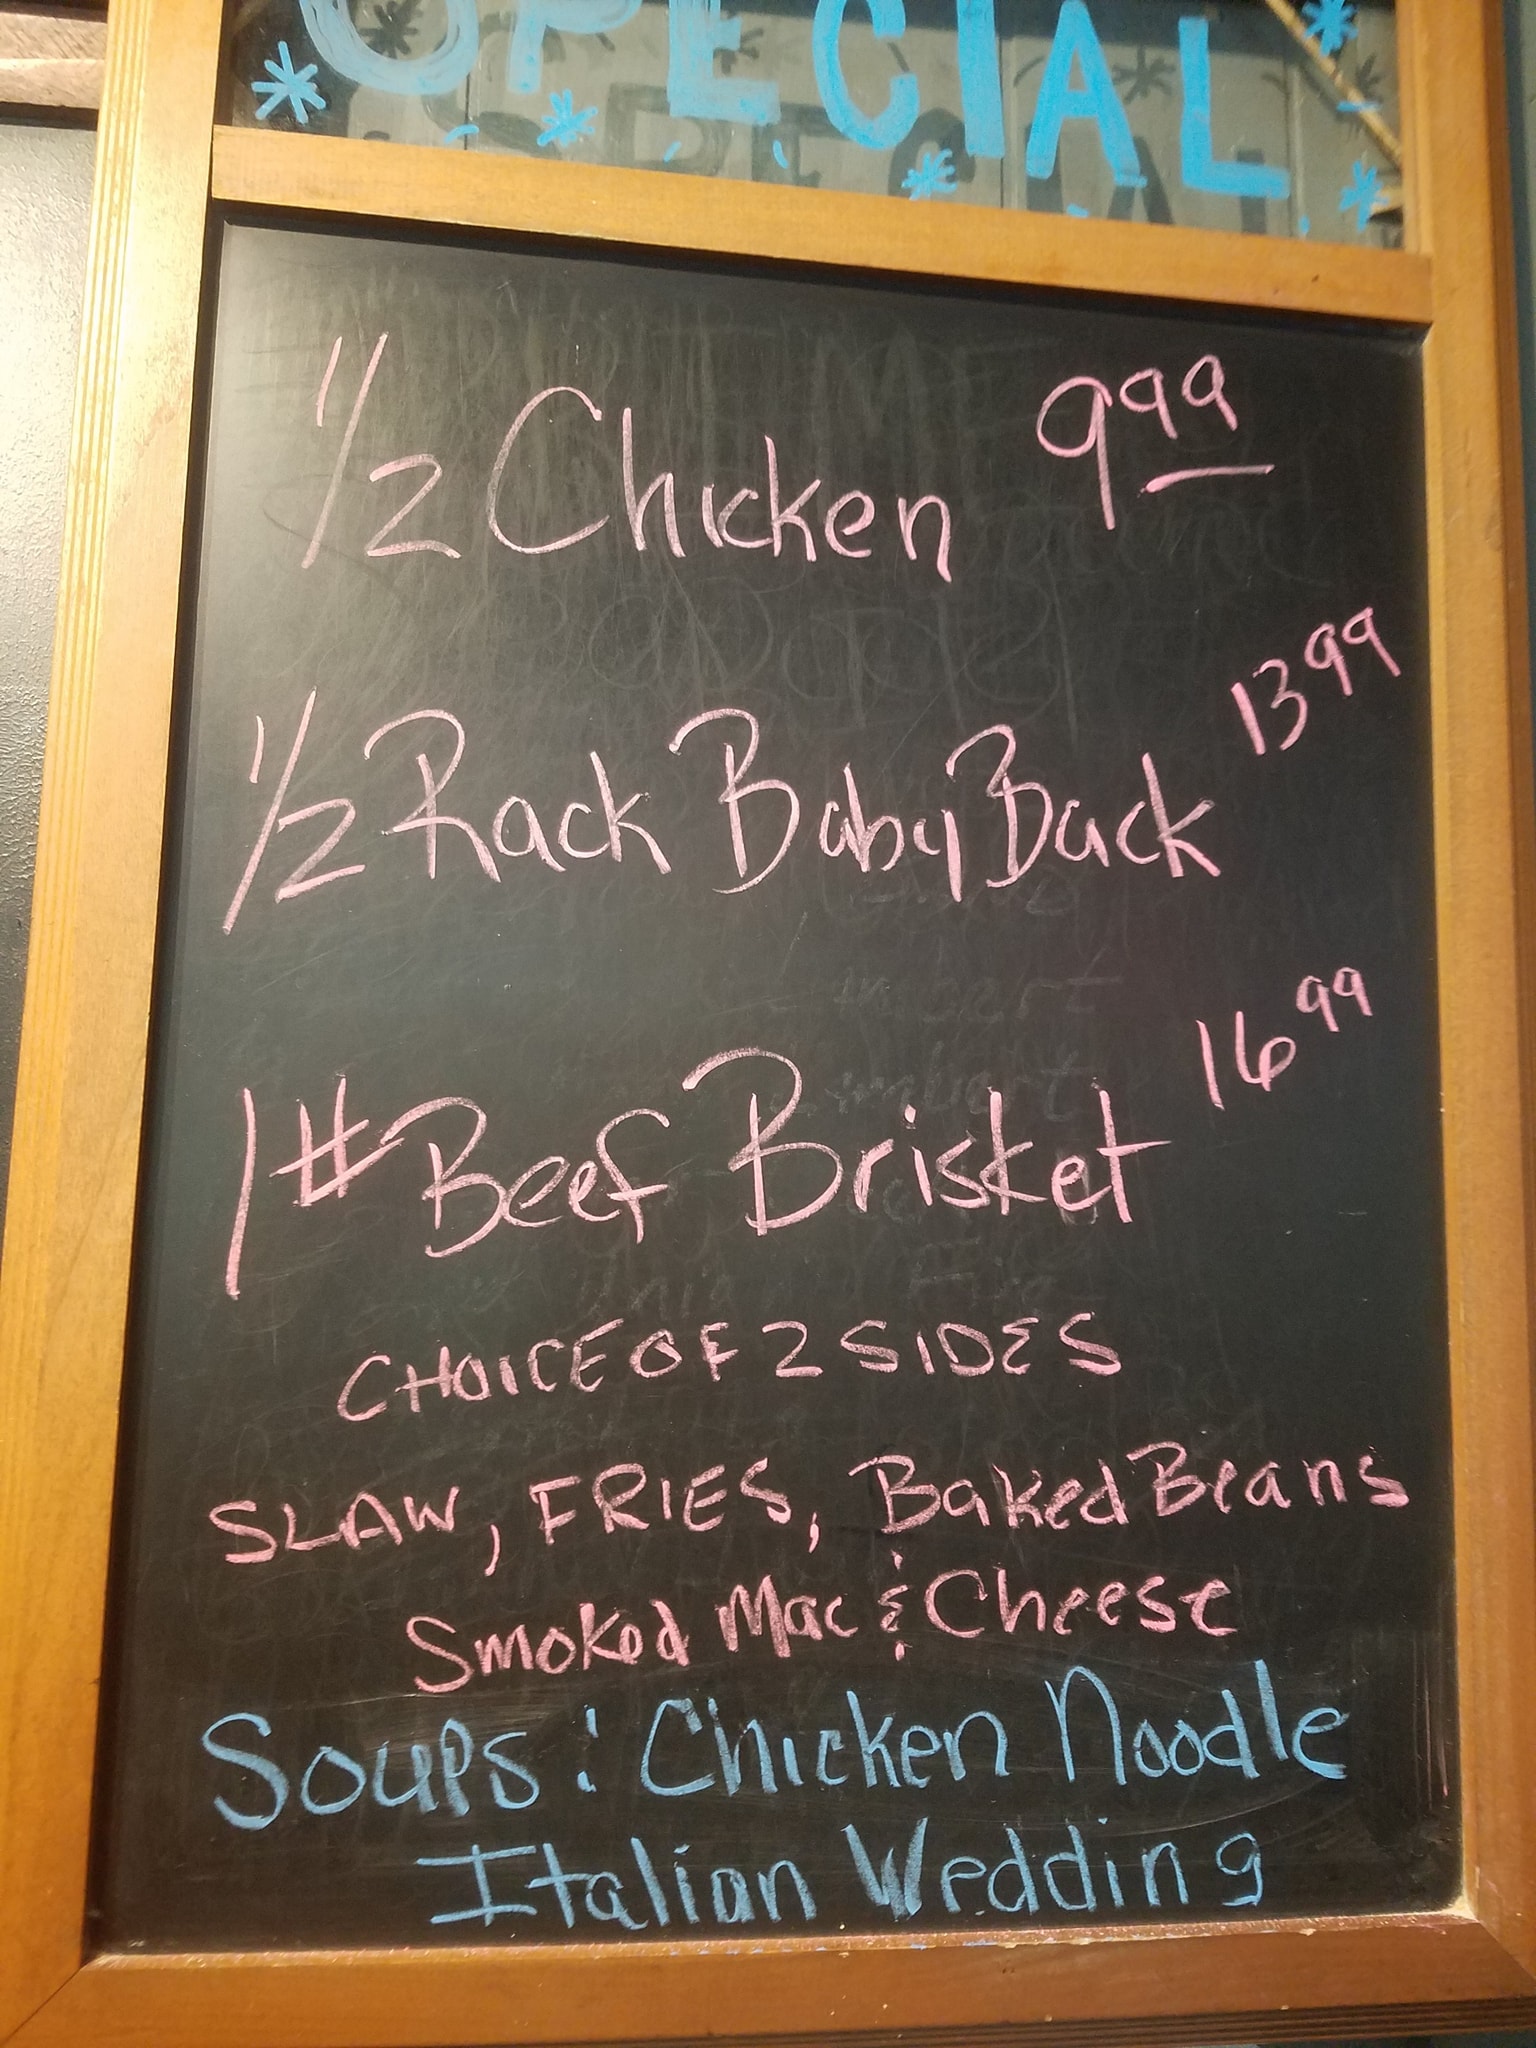 SPECIAL
1/2 Chicken 9.99
1/2 Rack Baby Back 13.99
1# Beef Brisket 16.99
CHOICE OF 2 SIDES
SLAW, FRIES, Baked Beans
Smoked Mac & Cheese
Soups: Chicken Noodle
Italian Wedding